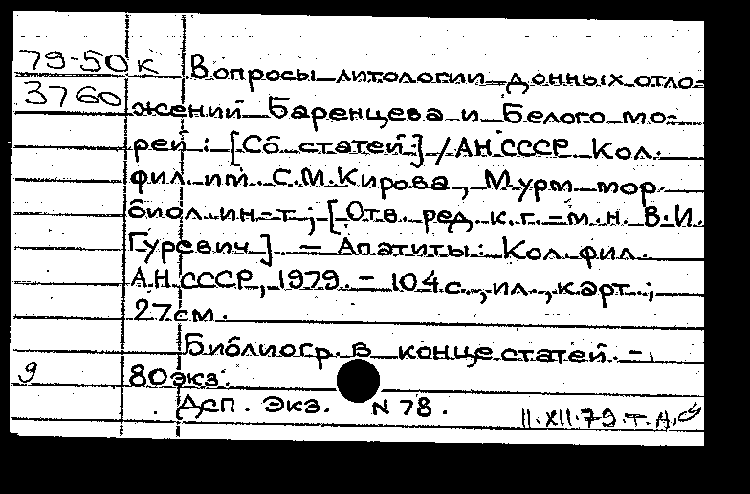 79-50 к Вопросы литологии донных отло-
3760 жений Баренцева и Белого мо-
рей : [Сб статей.] / АН СССР Кол.
фил. им. С.М.Кирова, Мурм мор.
биол. ин-т ; [Отв. ред. к.г.-м.н. В.И.
Гуревич] — Апатиты: Кол. фил.
АН СССР, 1979. - 104 с., ил., карт.;
27 см.
Библиогр. в конце статей. -
9 80 экз.
Дсп. Экз. N 78.
11.XII.79.т.А.